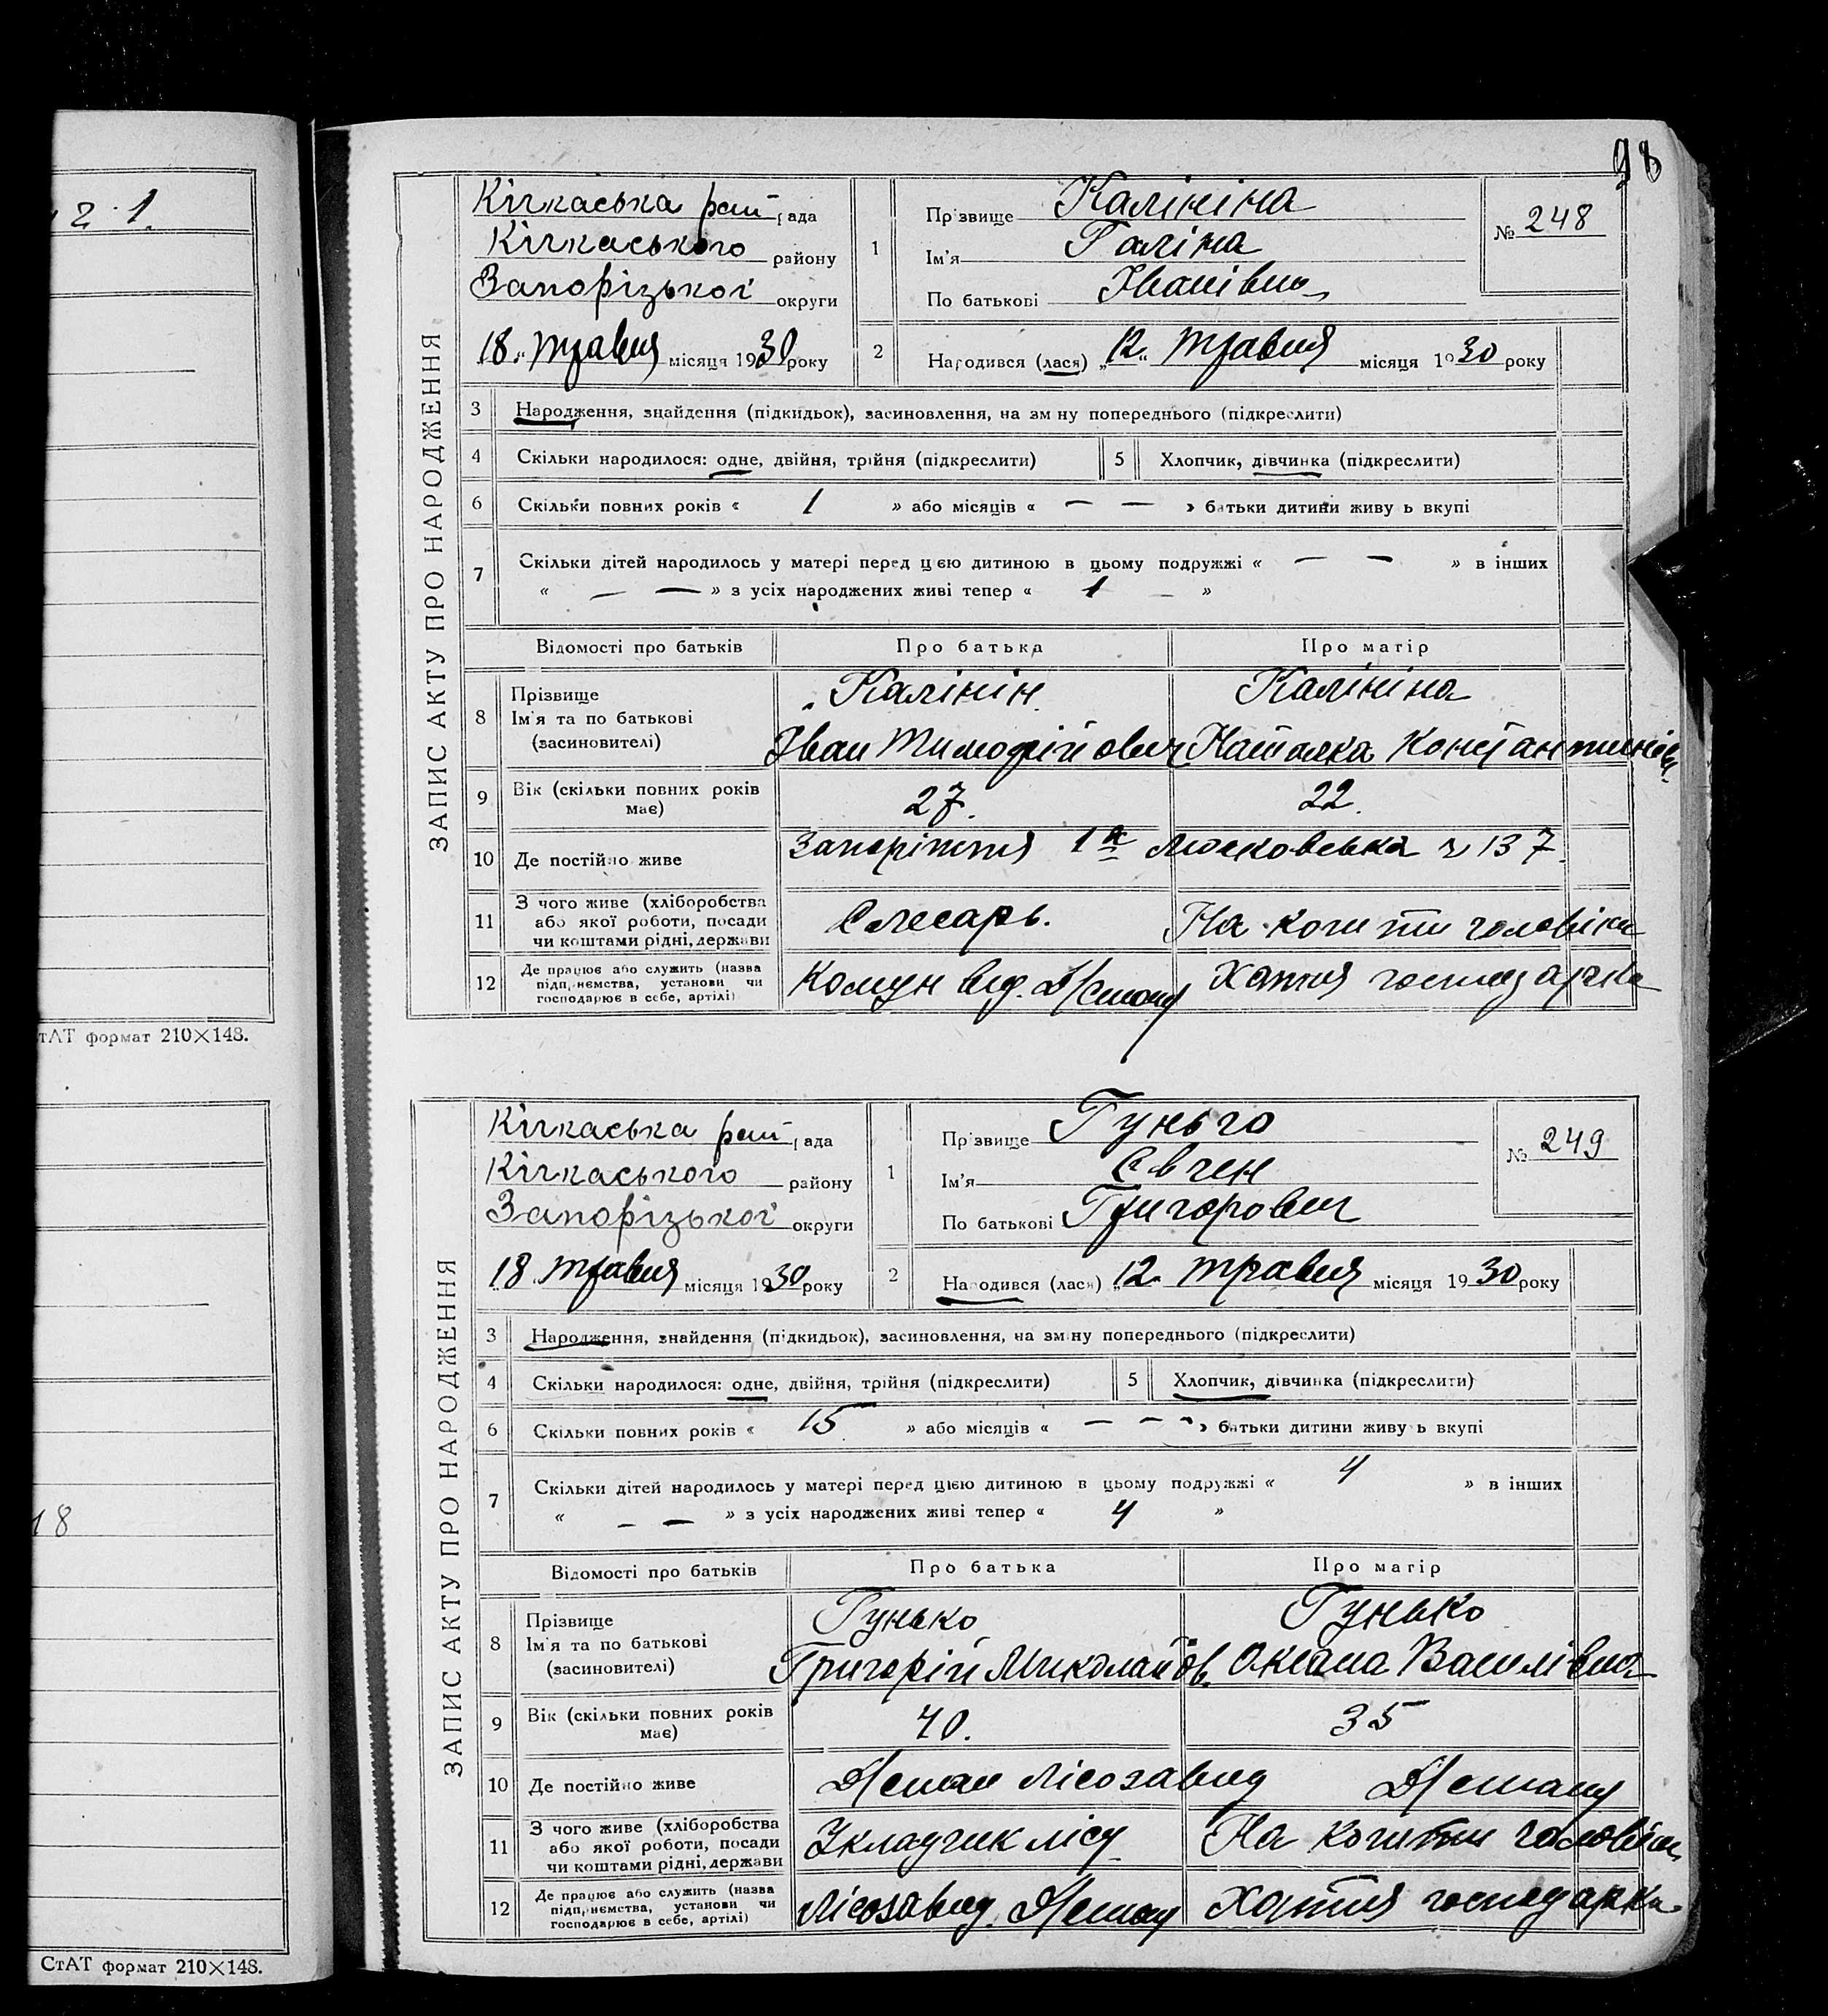 98
2 1.
тАТ формат 210×148.
18
СтАТ формат 210×148.
ЗАПИС АКТУ ПРО НАРОДЖЕННЯ
Кічкаська рай рада
Кічкаського району
Запорізької округи
18 „ травня місяця 1930 року
1 Прізвище Калініна
Ім'я Галіна
По батькові Іванівна
№ 248
2 Народився (лася) „12„ травня місяця 1930 року
3 Народження, знайдення (підкидьок), засиновлення, на зміну попереднього (підкреслити)
4 Скільки народилося: одне, двійня, трійня (підкреслити) 5 Хлопчик, дівчинка (підкреслити)
6 Скільки повних років « 1 » або місяців « — — » батьки дитини живуть вкупі
7 Скільки дітей народилось у матері перед цією дитиною в цьому подружжі « — — » в інших
« — — » з усіх народжених живі тепер « 1 — »
Відомості про батьків Про батька Про матір
8 Прізвище Калінін Калініна
Ім'я та по батькові
(засиновителі) Іван Тимофійович Наталка Константинів.
9 Вік (скільки повних років має) 27. 22.
10 Де постійно живе Запоріжжя 1а Московська ч 137.
11 З чого живе (хліборобства
або якої роботи, посади
чи коштами рідні, держави Слесарь. На кошти чоловіка
12 Де працює або служить (назва
підприємства, установи чи
господарює в себе, артілі) Комун від. Хатня господарка
ЗАПИС АКТУ ПРО НАРОДЖЕННЯ
Кічкаська рай рада
Кічкаського району
Запорізької округи
„18 травня місяця 1930 року
1 Прізвище Гунько
Ім'я Євген
По батькові Григорович
№ 249
2 Народився (лася) „12. травня місяця 1930 року
3 Народження, знайдення (підкидьок), засиновлення, на зміну попереднього (підкреслити)
4 Скільки народилося: одне, двійня, трійня (підкреслити) 5 Хлопчик, дівчинка (підкреслити)
6 Скільки повних років « 15 » або місяців « — — — » батьки дитини живуть вкупі
7 Скільки дітей народилось у матері перед цією дитиною в цьому подружжі « 4 » в інших
« — — » з усіх народжених живі тепер « 4 »
Відомості про батьків Про батька Про матір
8 Прізвище Гунько Гунько
Ім'я та по батькові
(засиновителі) Григорій Миколайов. Оксана Василівна
9 Вік (скільки повних років має) 40. 35
10 Де постійно живе лісозавод
11 З чого живе (хліборобства
або якої роботи, посади
чи коштами рідні, держави Укладчик лісу На кошти чоловіка
12 Де працює або служить (назва
підприємства, установи чи
господарює в себе, артілі) Лісозавод. Хатня господарка